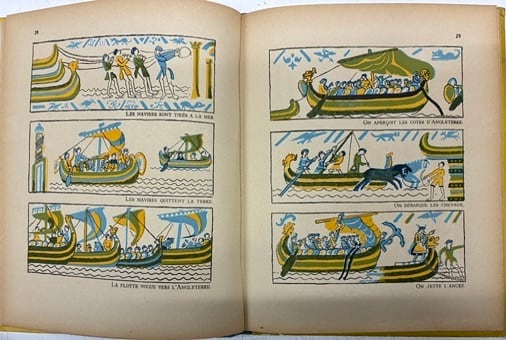 LES NAVIRES SONT TIRÉS A LA MER
LES NAVIRES QUITTENT LA TERRE.
LA FLOTTE VOGUE VERS L'ANGLETERRE.
ON APERÇUT LES COTES D'ANGLETERRE.
ON DÉBARQUE LES CHEVAUX.
ON JETTE L'ANCRE.